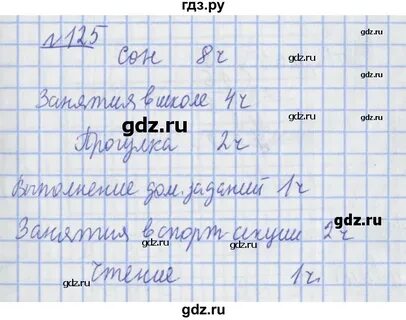 гдз.ру
№125
сон 8ч
gdz.ru
Занятия в школе 4ч
gdz.ru
gdz.ru
Прогулка 2ч
gdz.ru
Выполнение дом. заданий 1ч
gdz.ru
Занятия в спорт-секции 2ч
gdz.ru
Чтение 1ч.
gdz.ru